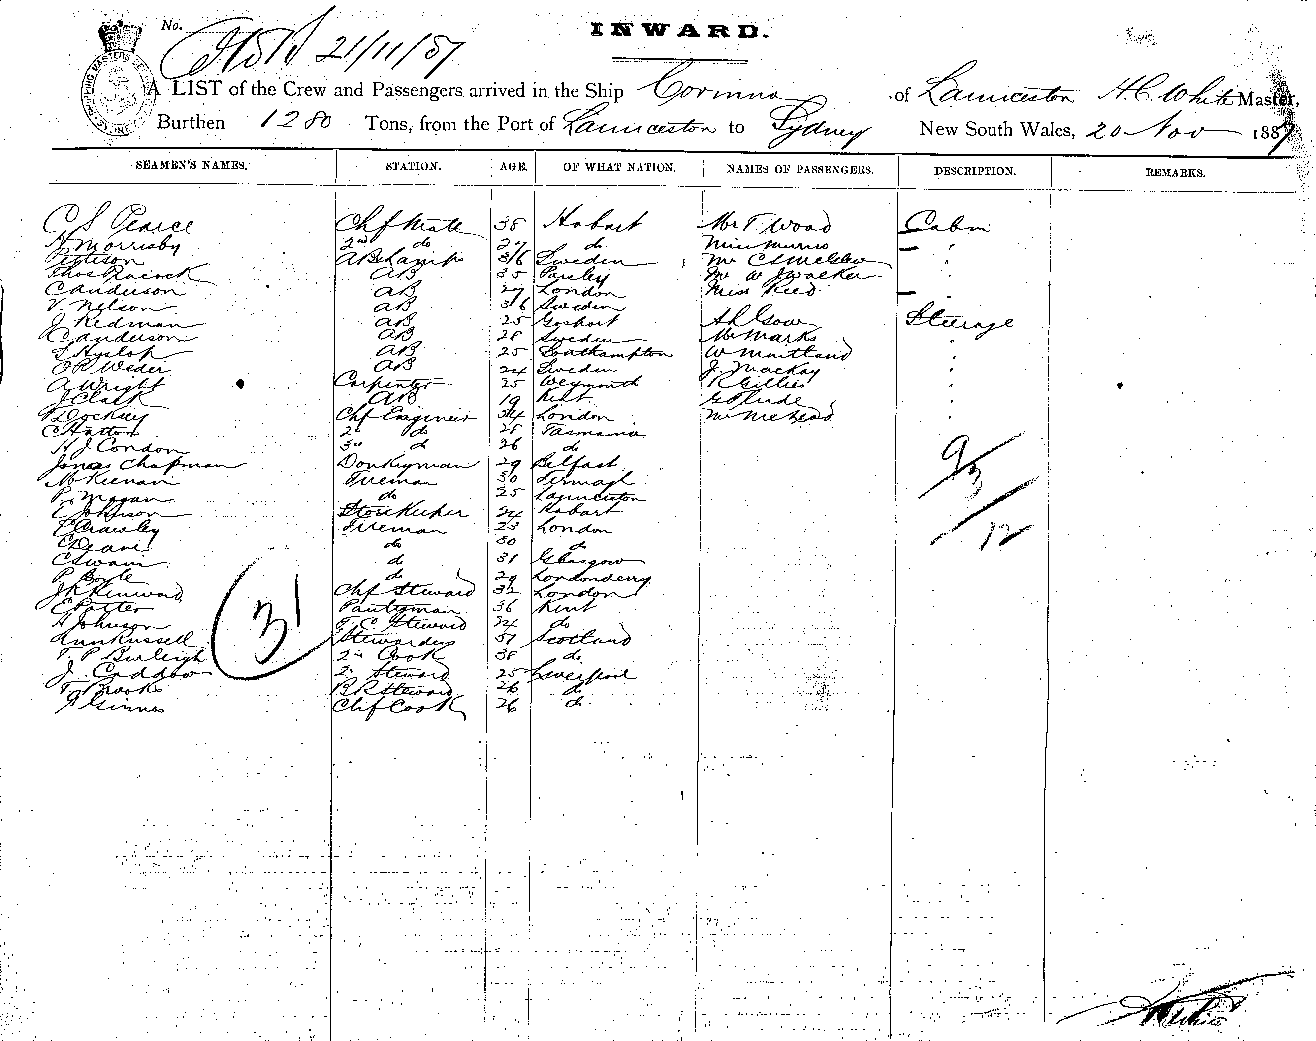 No.
21/11/87
INWARD.
A LIST of the Crew and Passengers arrived in the Ship Corinna of Launceston H.C. White Master,
Burthen 1280 Tons, from the Port of Launceston to Sydney New South Wales, 20 Nov 1887
SEAMEN'S NAMES. STATION. AGE. OF WHAT NATION. NAMES OF PASSENGERS. DESCRIPTION. REMARKS.
C S Pearce Chf Mate 38 Hobart Mr T Wood Cabin
H Morrisby 2nd do 27 do Miss Munro
AB & Lamps 36 Sweden Mr
Thos Peacock AB 35 Paisley Mr W J Walker
C Anderson AB 27 London Miss Reed
V Nelson AB 36 Sweden
J Redman AB 25 Gosport Steerage
C Anderson AB 28 Sweden Mr Marks
AB 25 Southampton W Maitland
AB 24 Sweden J Mackay
A Wright Carpenter 25 Weymouth R Gillies
J Clark AB 19 Kent
Chf Engineer 34 London
C Hatton 2nd do 28 Tasmania
H J Condon 3rd do 26 do
James Chapman Donkeyman 29 Belfast
McKeenan Fireman 30
P Magan do 25 Launceston
E Johnson Storekeeper 24 Hobart
F Crawley Fireman 23 London
C Deane do 30 do
C Swain do 31 Glasgow
P Boyle do 29 Londonderry
Chf Steward 32 London
C Potter Pantryman 36 Kent
H Johnson F. C Steward 24 do
Ann Russell Stewardess 51 Scotland
T P Burleigh 2nd Cook 38 do
J Caddow 2nd Steward 25 Liverpool
T Brooks B R Steward 26 do
Chf Cook 26 do
31
9/3
/12